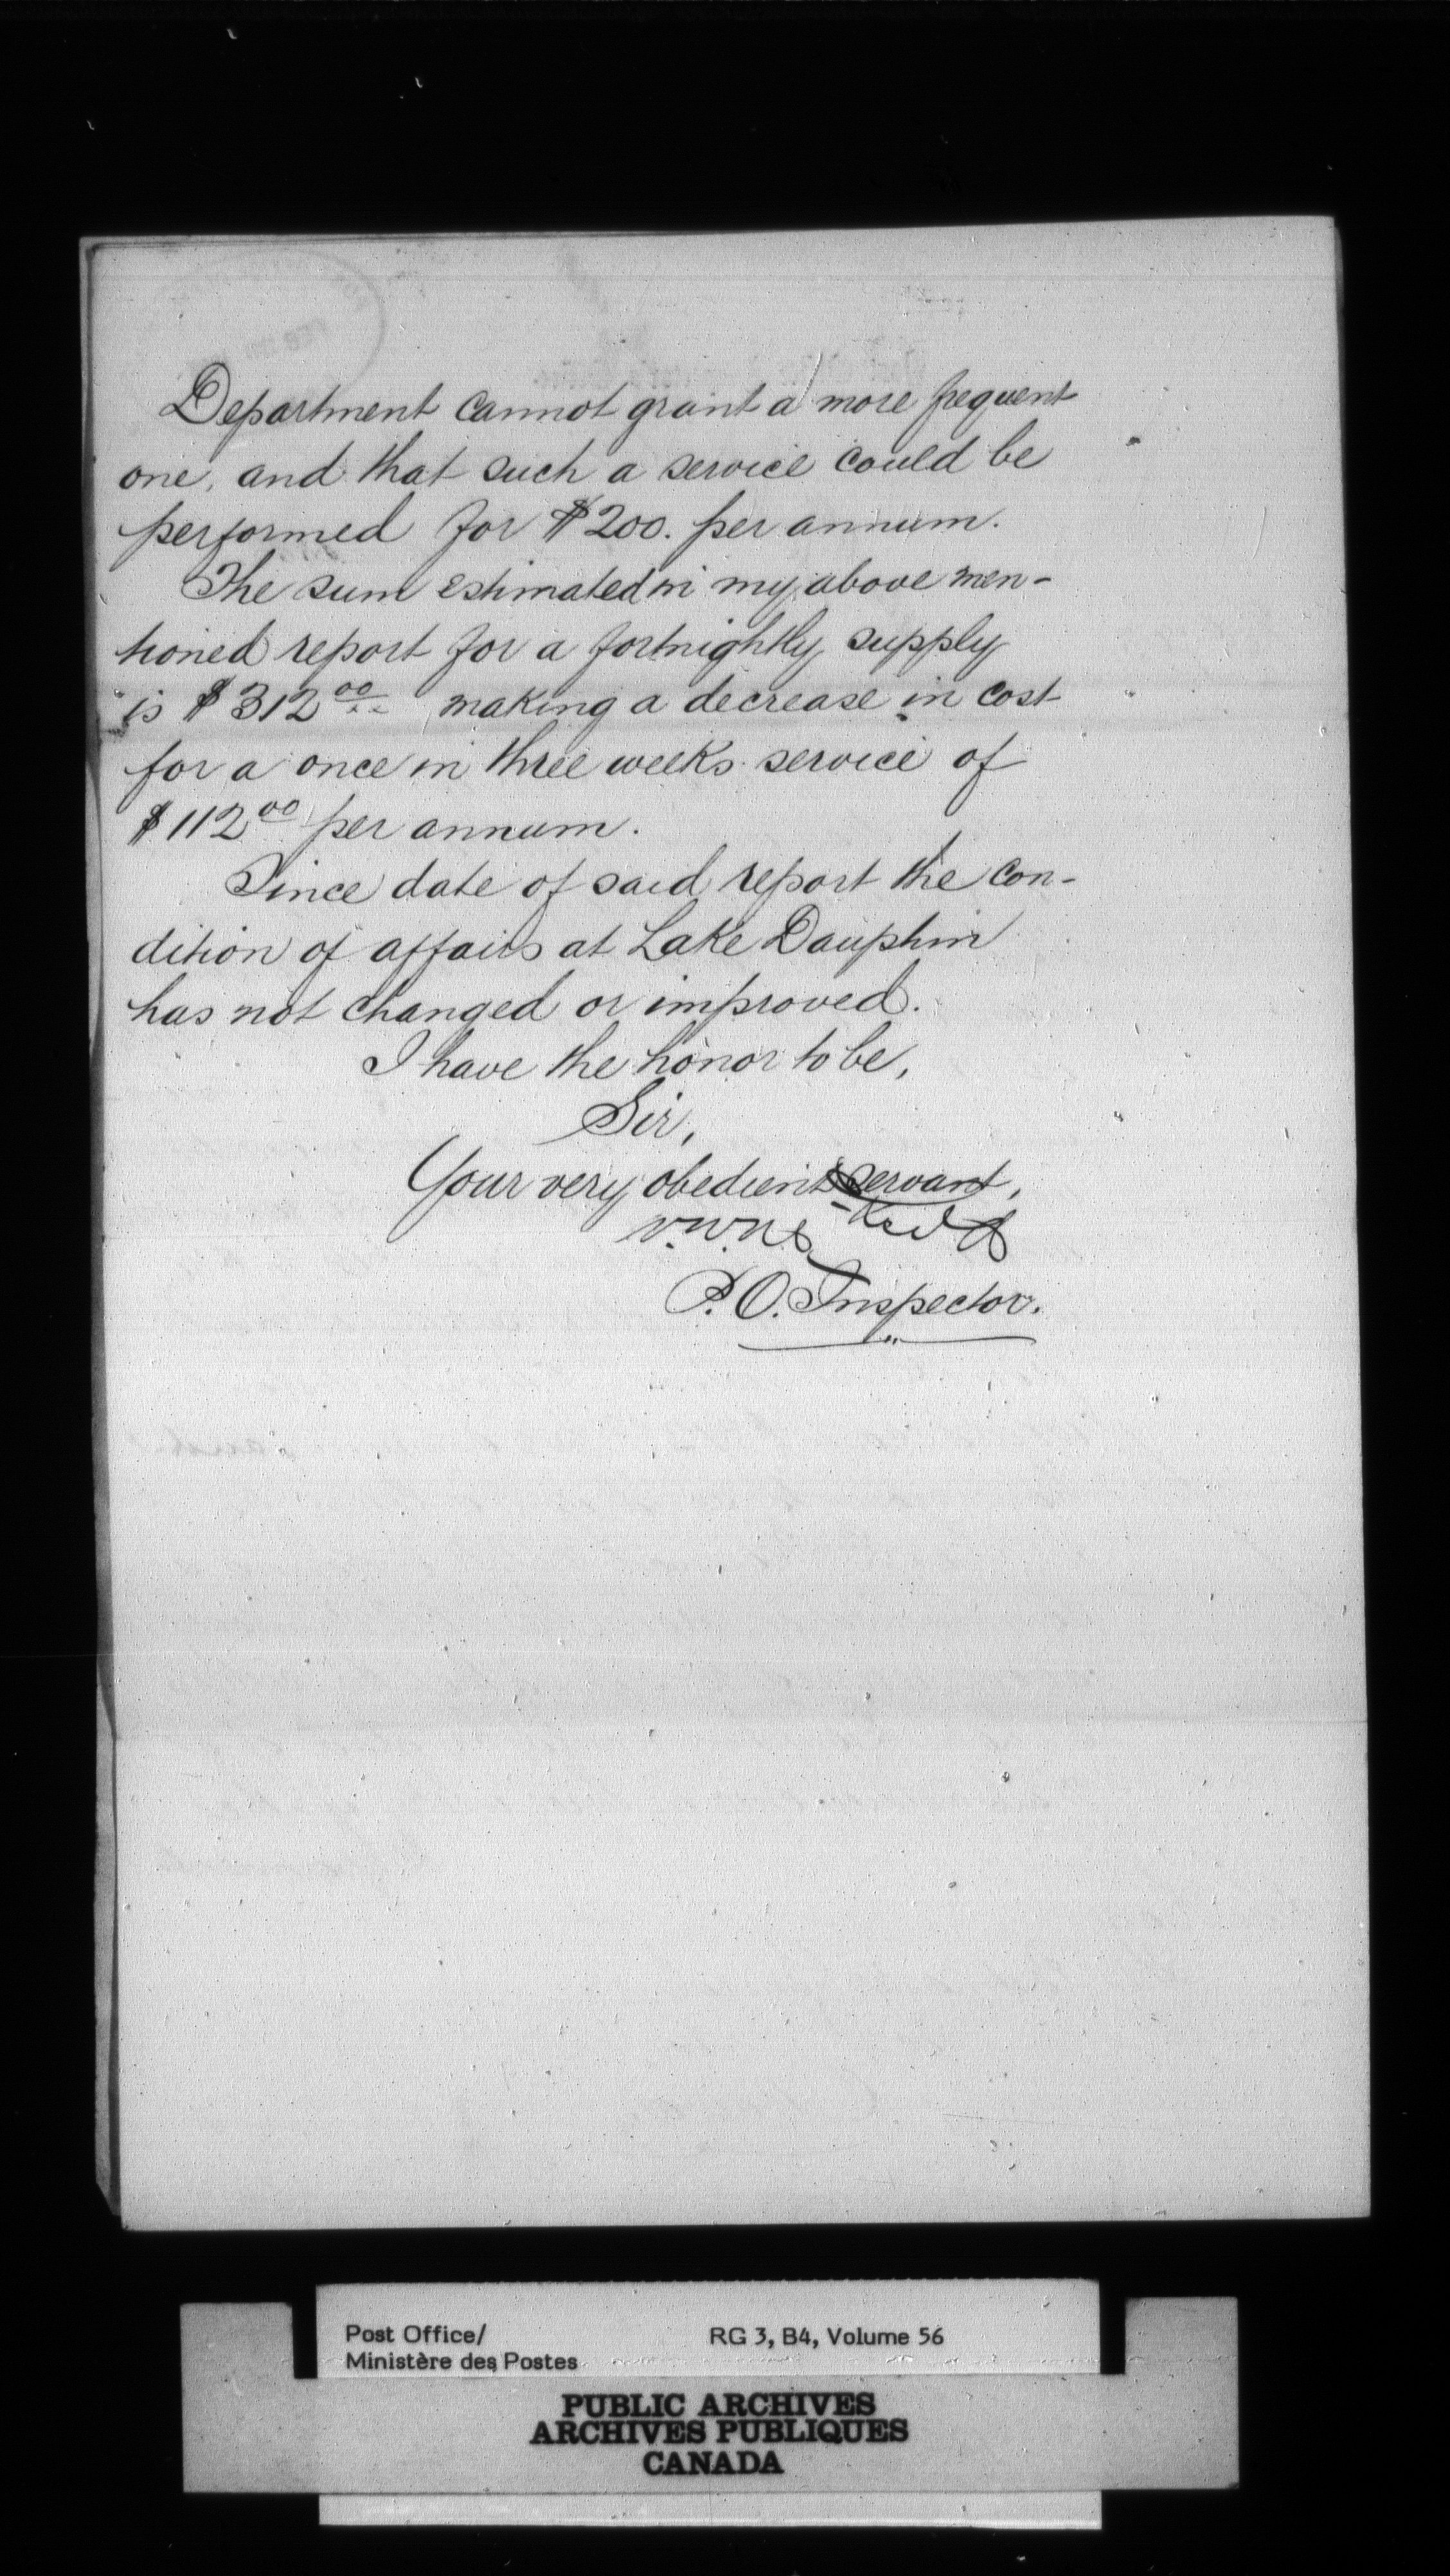 Department cannot grant a more frequent
one, and that such a service could be
performed for $200. per annum.
The sum estimated in my above men-
tioned report for a fortnightly supply
is $312 00 making a decrease in cost
for a once in three weeks service of
$112 00 per annum.
Since date of said report the con-
dition of affairs at Lake Dauphin
has not changed or improved.
I have the honor to be,
Sir,
Your very obedient servant,
P. O. Inspector.
Post Office/ RG 3, B4, Volume 56
Ministère des Postes
PUBLIC ARCHIVES
ARCHIVES PUBLIQUES
CANADA